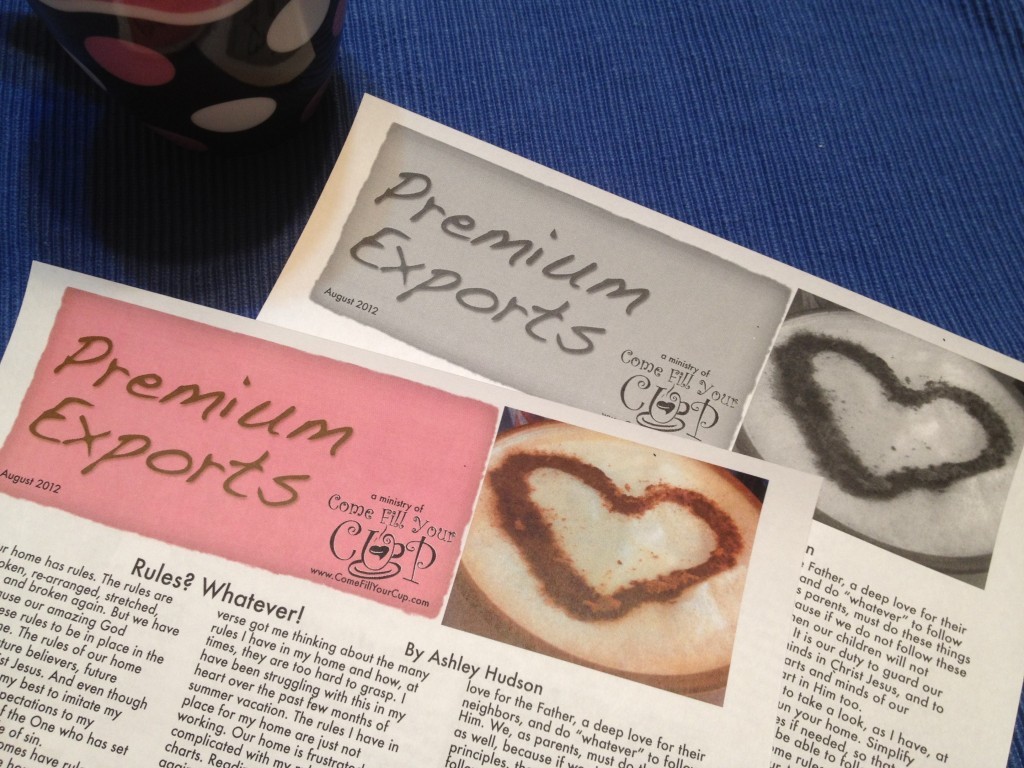 Premium
Exports
August 2012
a ministry of
Come Fill Your
CUP
n
Father, a deep love for their
and do "whatever" to follow
parents, must do these things
ause if we do not follow these
en our children will not
minds in Christ Jesus, and to
It is our duty to guard our
arts and minds of our
rt in Him too.
to take a look, as I have, at
un your home. Simplify
s if needed, so that
be able to foll
me rules
Premium
Exports
August 2012
a ministry of
Come Fill Your
CUP
www.ComeFillYourCup.com
Rules? Whatever!
By Ashley Hudson
ur home has rules. The rules are
oken, re-arranged, stretched,
and broken again. But we have
use our amazing God
ese rules to be in place in the
e. The rules of our home
ture believers, future
st Jesus. And even though
my best to imitate my
pectations to my
f the One who has set
e of sin,
omes have rul
verse got me thinking about the many
rules I have in my home and how, at
times, they are too hard to grasp. I
have been struggling with this in my
heart over the past few months of
summer vacation. The rules I have in
place for my home are just not
working. Our home is frustrate
complicated with my r
charts. Readi
again
love for the Father, a deep love for their
neighbors, and do "whatever" to follow
Him. We, as parents, must do the
as well, because if w
principles, th
follo